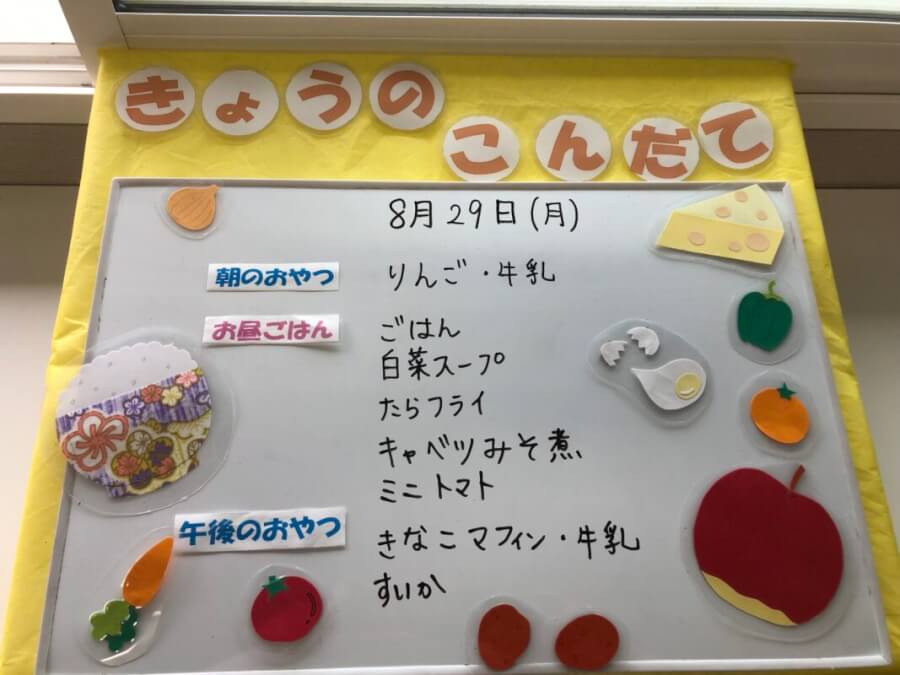 きょうの
こんだて
8月29日(月)
朝のおやつ りんご・牛乳
お昼ごはん ごはん
白菜スープ
たらフライ
キャベツみそ煮
ミニトマト
午後のおやつ きなこマフィン・牛乳
すいか